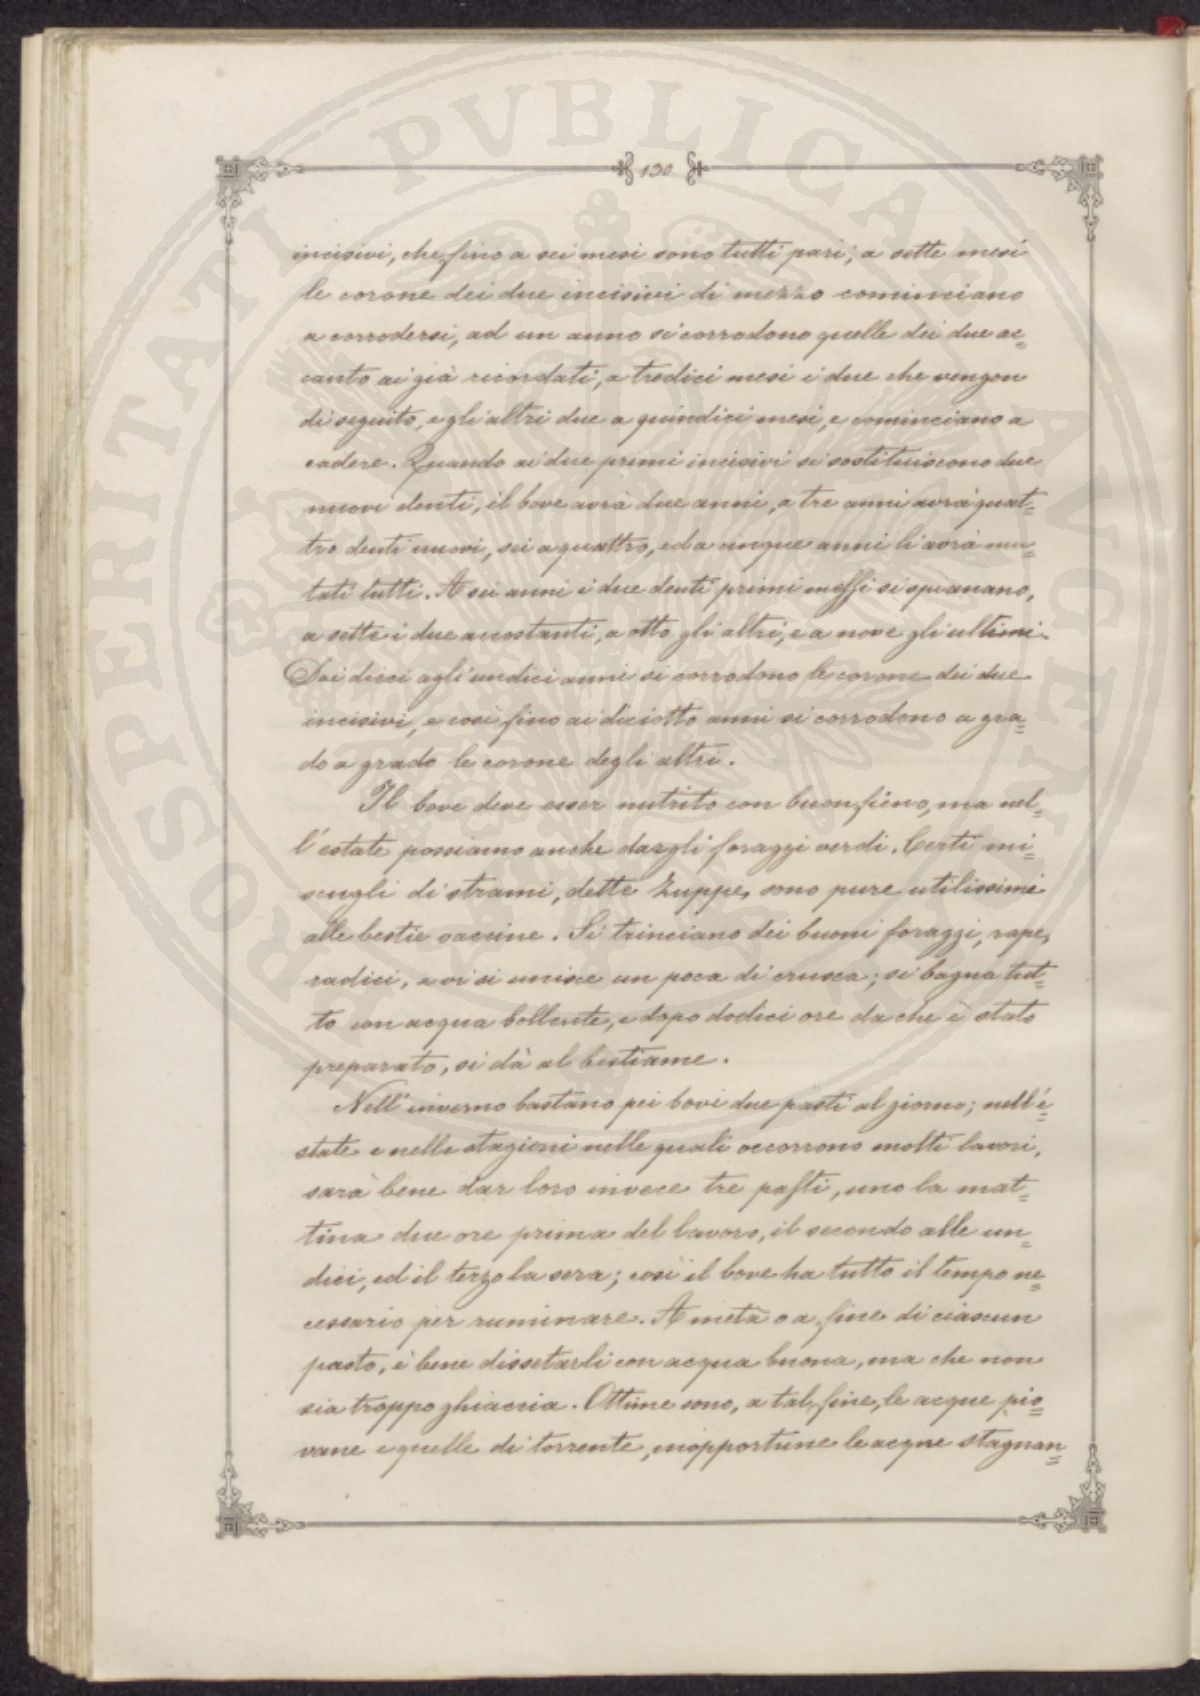 130
incisivi, che fino a sei mesi sono tutti pari; a sette mesi
le corone dei due incisivi di mezzo cominciano
a corrodersi, ad un anno si corrodono quelle dei due ac=
canto ai già ricordati, a tredici mesi i due che vengon
di seguito, e gli altri due a quindici mesi, e cominciano a
cadere. Quando ai due primi incisivi si sostituiscono due
nuovi denti, il bove avrà due anni, a tre anni avrà quat=
tro denti nuovi, sei a quattro, ed a cinque anni li avrà mu=
tati tutti. A sei anni i due denti primi messi si spianano,
a sette i due accostanti, a otto gli altri, e a nove gli ultimi.
Dai dieci agli undici anni si corrodono le corone dei due
incisivi, e così fino ai diciotto anni si corrodono a gra=
do a grado le corone degli altri.
Il bove deve esser nutrito con buon fieno, ma nel=
l'estate possiamo anche dargli foraggi verdi. Certi mi=
scugli di strami, dette zuppe, sono pure utilissimi
alle bestie vaccine. Si trinciano dei buoni foraggi, rape,
radici, e vi si unisce un poca di crusca; si bagna tut=
to con acqua bollente, e dopo dodici ore da che è stato
preparato, si dà al bestiame.
Nell'inverno bastano pei bovi due pasti al giorno; nell'e=
state e nelle stagioni nelle quali occorrono molti lavori,
sarà bene dar loro invece tre pasti, uno la mat=
tina due ore prima del lavoro, il secondo alle un=
dici, ed il terzo la sera; così il bove ha tutto il tempo ne=
cessario per ruminare. A metà o a fine di ciascun
pasto, è bene dissetarli con acqua buona, ma che non
sia troppo ghiaccia. Ottime sono, a tal fine, le acque pio=
vane e quelle di torrente, inopportune le acque stagnan=
PROSPERITATI PVBLICAE AVGENDAE